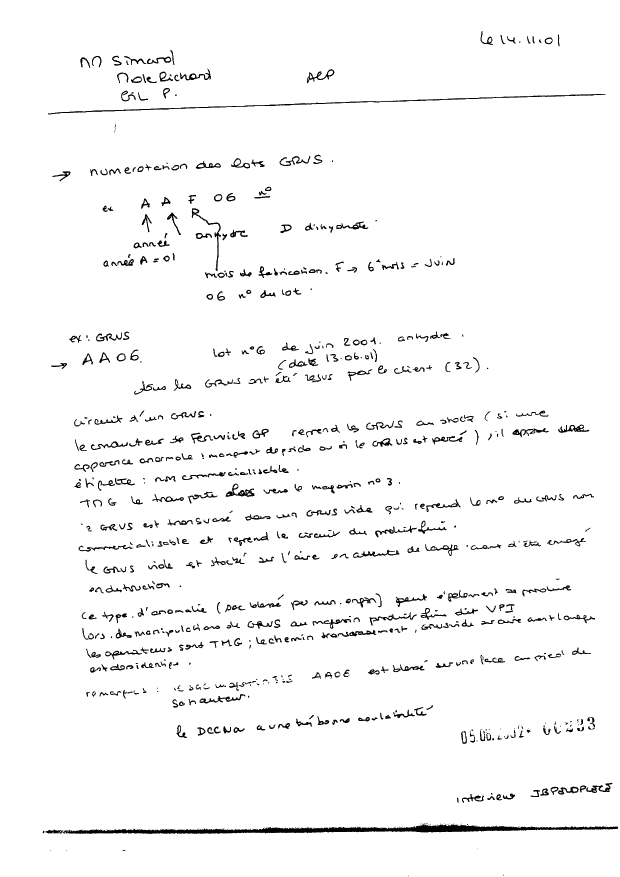 le 14.11.01
MM Simard
Mole Richard
GIL P.
ACP
→ numerotation des lots GRVS.
ex A A F 06 n°
R
année
anhydre D dihydrate.
année A = 01
mois de fabrication. F → 6e mois = JUIN
06 n° du lot.
ex: GRVS
→ AA06.
lot n°6 de juin 2001. anhydre.
(date 13.06.01)
tous les GRVS ont été reçus par le client (32).
circuit d'un GRVS.
le conducteur de Fenwick GP reprend les GRVS au stock (si une
apparence anormale : manquant de poids ou si le GRVS est percé), il appose une
étiquette : non commercialisable.
TMG le transporte vers le magasin n° 3.
GRVS est transvasé dans un GRVS vide qui reprend le n° du GRVS non
commercialisable et reprend le circuit du produit fini.
le GRVS vide est stocké sur l'aire en attente de lavage avant d'être envoyé
en destruction.
ce type d'anomalie (sac blessé par engin) peut également se produire
lors des manipulations de GRVS au magasin produit fini dit VPI
les operateurs sont TMG ; le chemin transvasement, GRVS vide avant lavage
est identique.
remarques : le sac magasin 335 AA06 est blessé sur une face au pied de
sa hauteur.
le DCCNa a une très bonne coulabilité
05.06.2002* 00233
interview